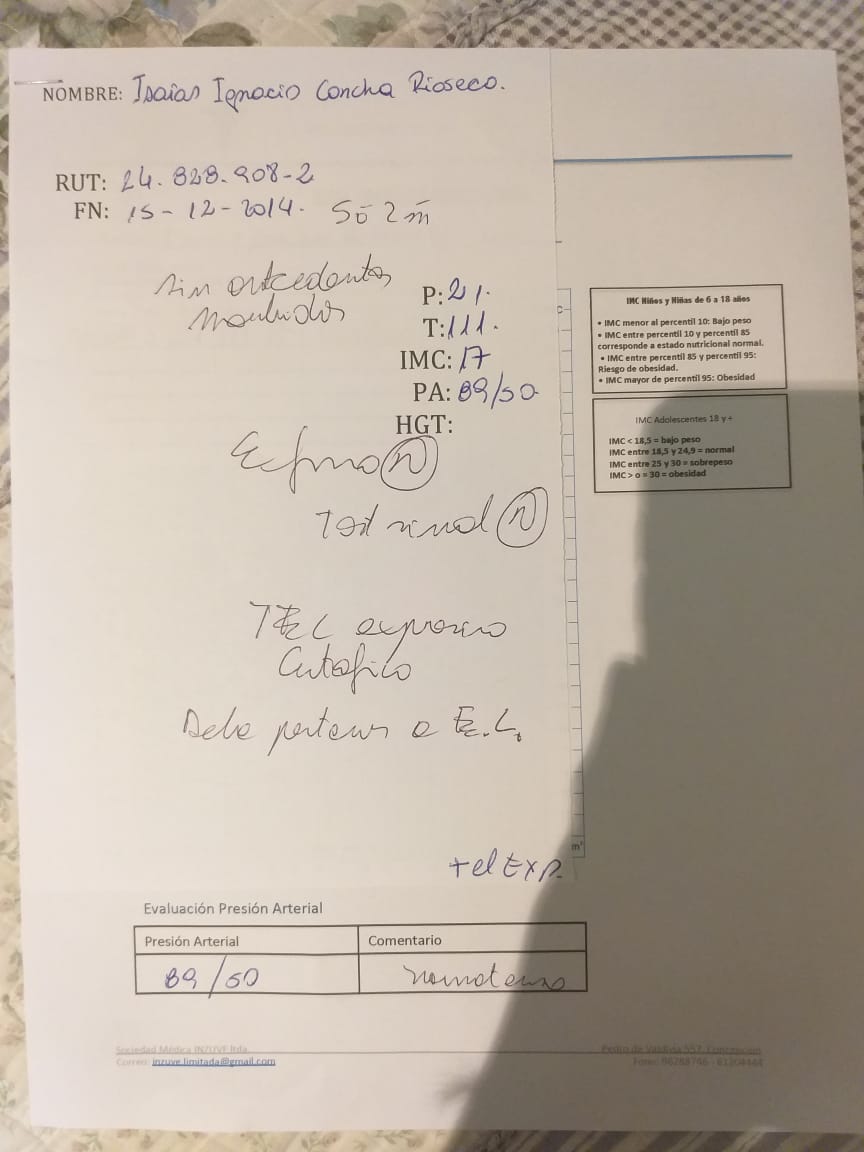 NOMBRE: Isaías Ignacio Concha Rioseco.
RUT: 24.828.908-2
FN: 15-12-2014. 5ā 2m̄
sin antecedentes
morbidos
P: 21.
T: 111.
IMC: 17
PA: 89/50
HGT:
IMC Niños y Niñas de 6 a 18 años
• IMC menor al percentil 10: Bajo peso
• IMC entre percentil 10 y percentil 85
corresponde a estado nutricional normal.
• IMC entre percentil 85 y percentil 95:
Riesgo de obesidad.
• IMC mayor de percentil 95: Obesidad
IMC Adolescentes 18 y +
IMC < 18,5 = bajo peso
IMC entre 18,5 y 24,9 = normal
IMC entre 25 y 30 = sobrepeso
IMC > o = 30 = obesidad
(N)
Test visual (N)
TEL expresivo
Debe a E.L.
m²
+ el Exp.
Evaluación Presión Arterial
Presión Arterial
Comentario
89/50
normotenso
Sociedad Médica INZUVE ltda.
Correo: inzuve.limitada@gmail.com
Pedro de Valdivia 557, Concepción